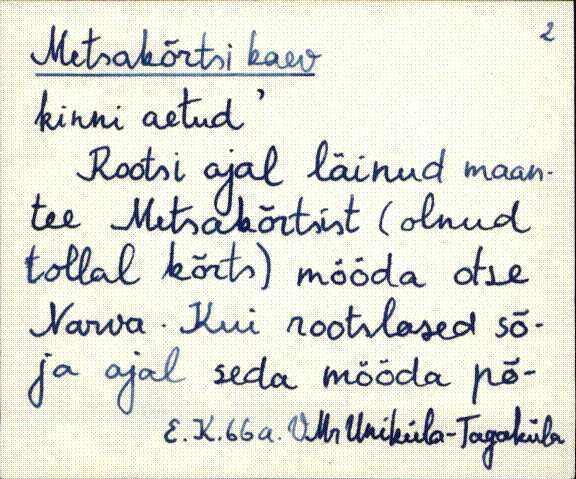 2
Metsakõrtsi kaev
kinni aetud'
Rootsi ajal läinud maan-
tee Metsakõrtsist (olnud
tollal kõrts) mööda otse
Narva. Kui rootslased sõ-
ja ajal seda mööda põ-
E.K. 66 a. V.Mr Uniküla-Tagaküla